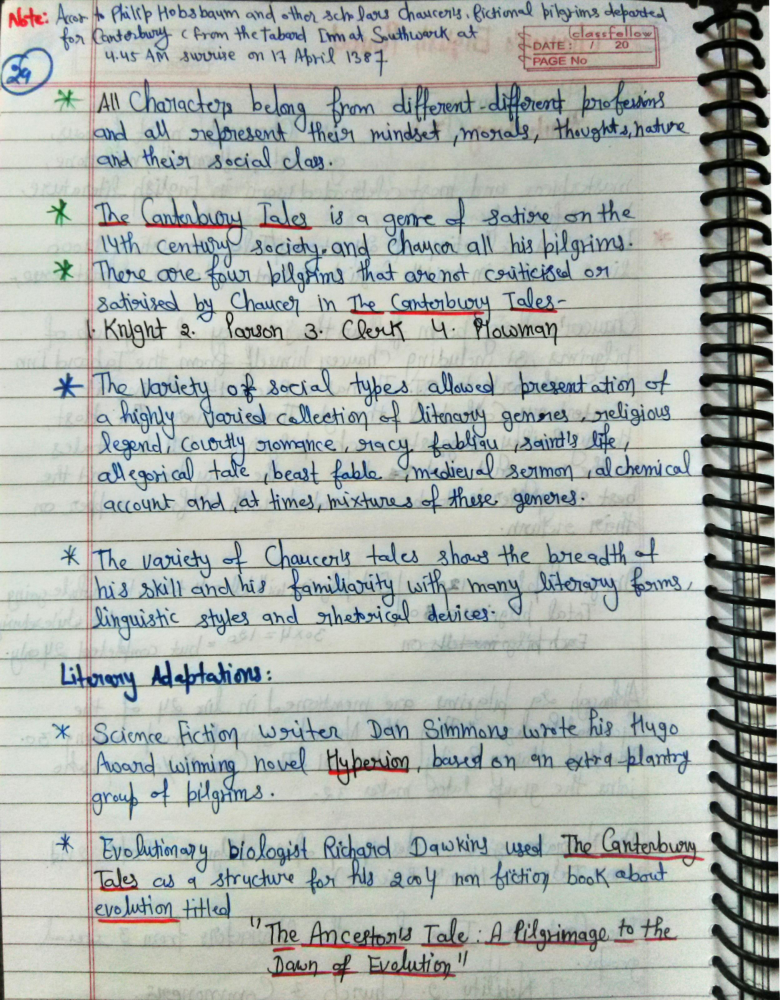 Note: Accor to Philip Hobsbaum and other scholars Chaucer's fictional pilgrims departed
for Canterbury (from the tabard Inn at Southwark at
4.45 AM sunrise on 17 April 1387
classfellow
DATE: / 20
PAGE No
29
* All Characters belong from different-different professions
and all represent their mindset, morals, thoughts, nature
and their social class.
* The Canterbury Tales is a genre of satire on the
14th century society. and Chaucer all his pilgrims.
* There are four pilgrims that are not criticised or
satirised by Chaucer in The Canterbury Tales-
1. Knight 2. Parson 3. Clerk 4. Plowman
* The variety of social types allowed presentation of
a highly varied collection of literary genres, religious
legend, courtly romance, racy fabliau, saint's life,
allegorical tale, beast fable, medieval sermon, alchemical
account and, at times, mixtures of these generes.
* The variety of Chaucer's tales shows the breadth of
his skill and his familiarity with many literary forms,
linguistic styles and rhetorical devices.
Literary Adaptations:
* Science Fiction writer Dan Simmons wrote his Hugo
Award winning novel Hyperion, based on an extra-plantry
group of pilgrims.
* Evolutionary biologist Richard Dawkins used The Canterbury
Tales as a structure for his 2004 non fiction book about
evolution titled
"The Ancestor's Tale: A Pilgrimage to the
Dawn of Evolution"